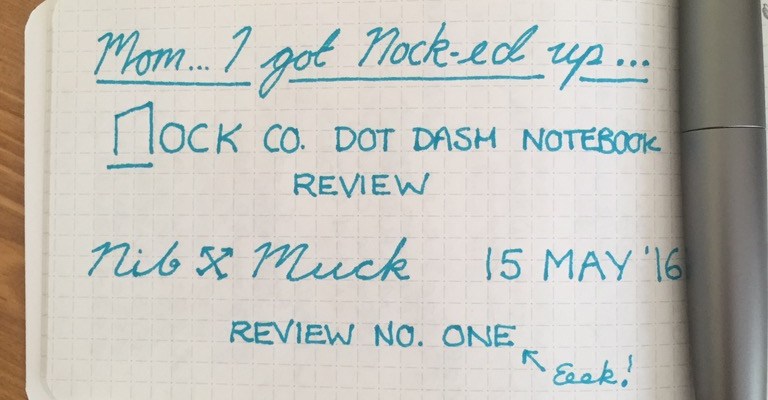 Mom... I got Nock-ed up...
NOCK CO. DOT DASH NOTEBOOK
REVIEW
Nib & Muck 15 MAY '16
REVIEW NO. ONE
Eeek!